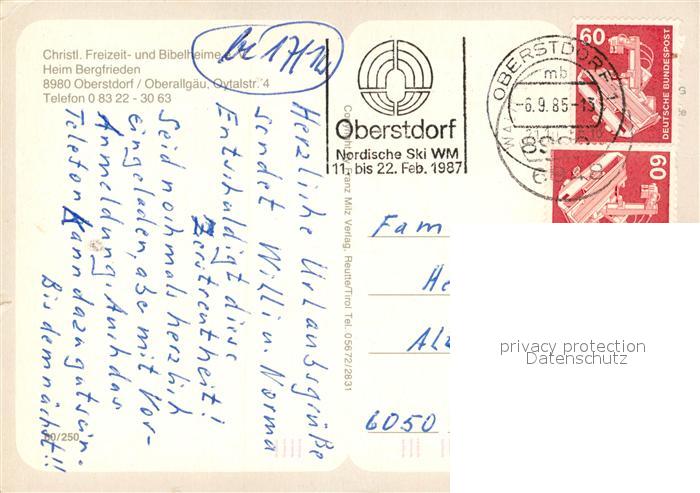 Christl. Freizeit- und Bibelheime
Heim Bergfrieden
8980 Oberstdorf / Oberallgäu, Oytalstr. 4
Telefon 0 83 22 - 30 63
Herzliche Urlaubsgrüße
sendet Willi u. Norma
Entschuldigt diese
Zerstreutheit!
Seid nochmals herzlich
eingeladen, aber mit Vor-
Anmeldung. Auch das
Telefon kann dazu gut sein.
Bis demnächst!!
60/250
Copyright Franz Milz Verlag, Reutte/Tirol Tel. 05672/2831
Oberstdorf
Nordische Ski WM
11. bis 22. Feb. 1987
OBERSTDORF 1
mb
-6.9.85-13
60
DEUTSCHE BUNDESPOST
60
Fam
He
6050
privacy protection
Datenschutz